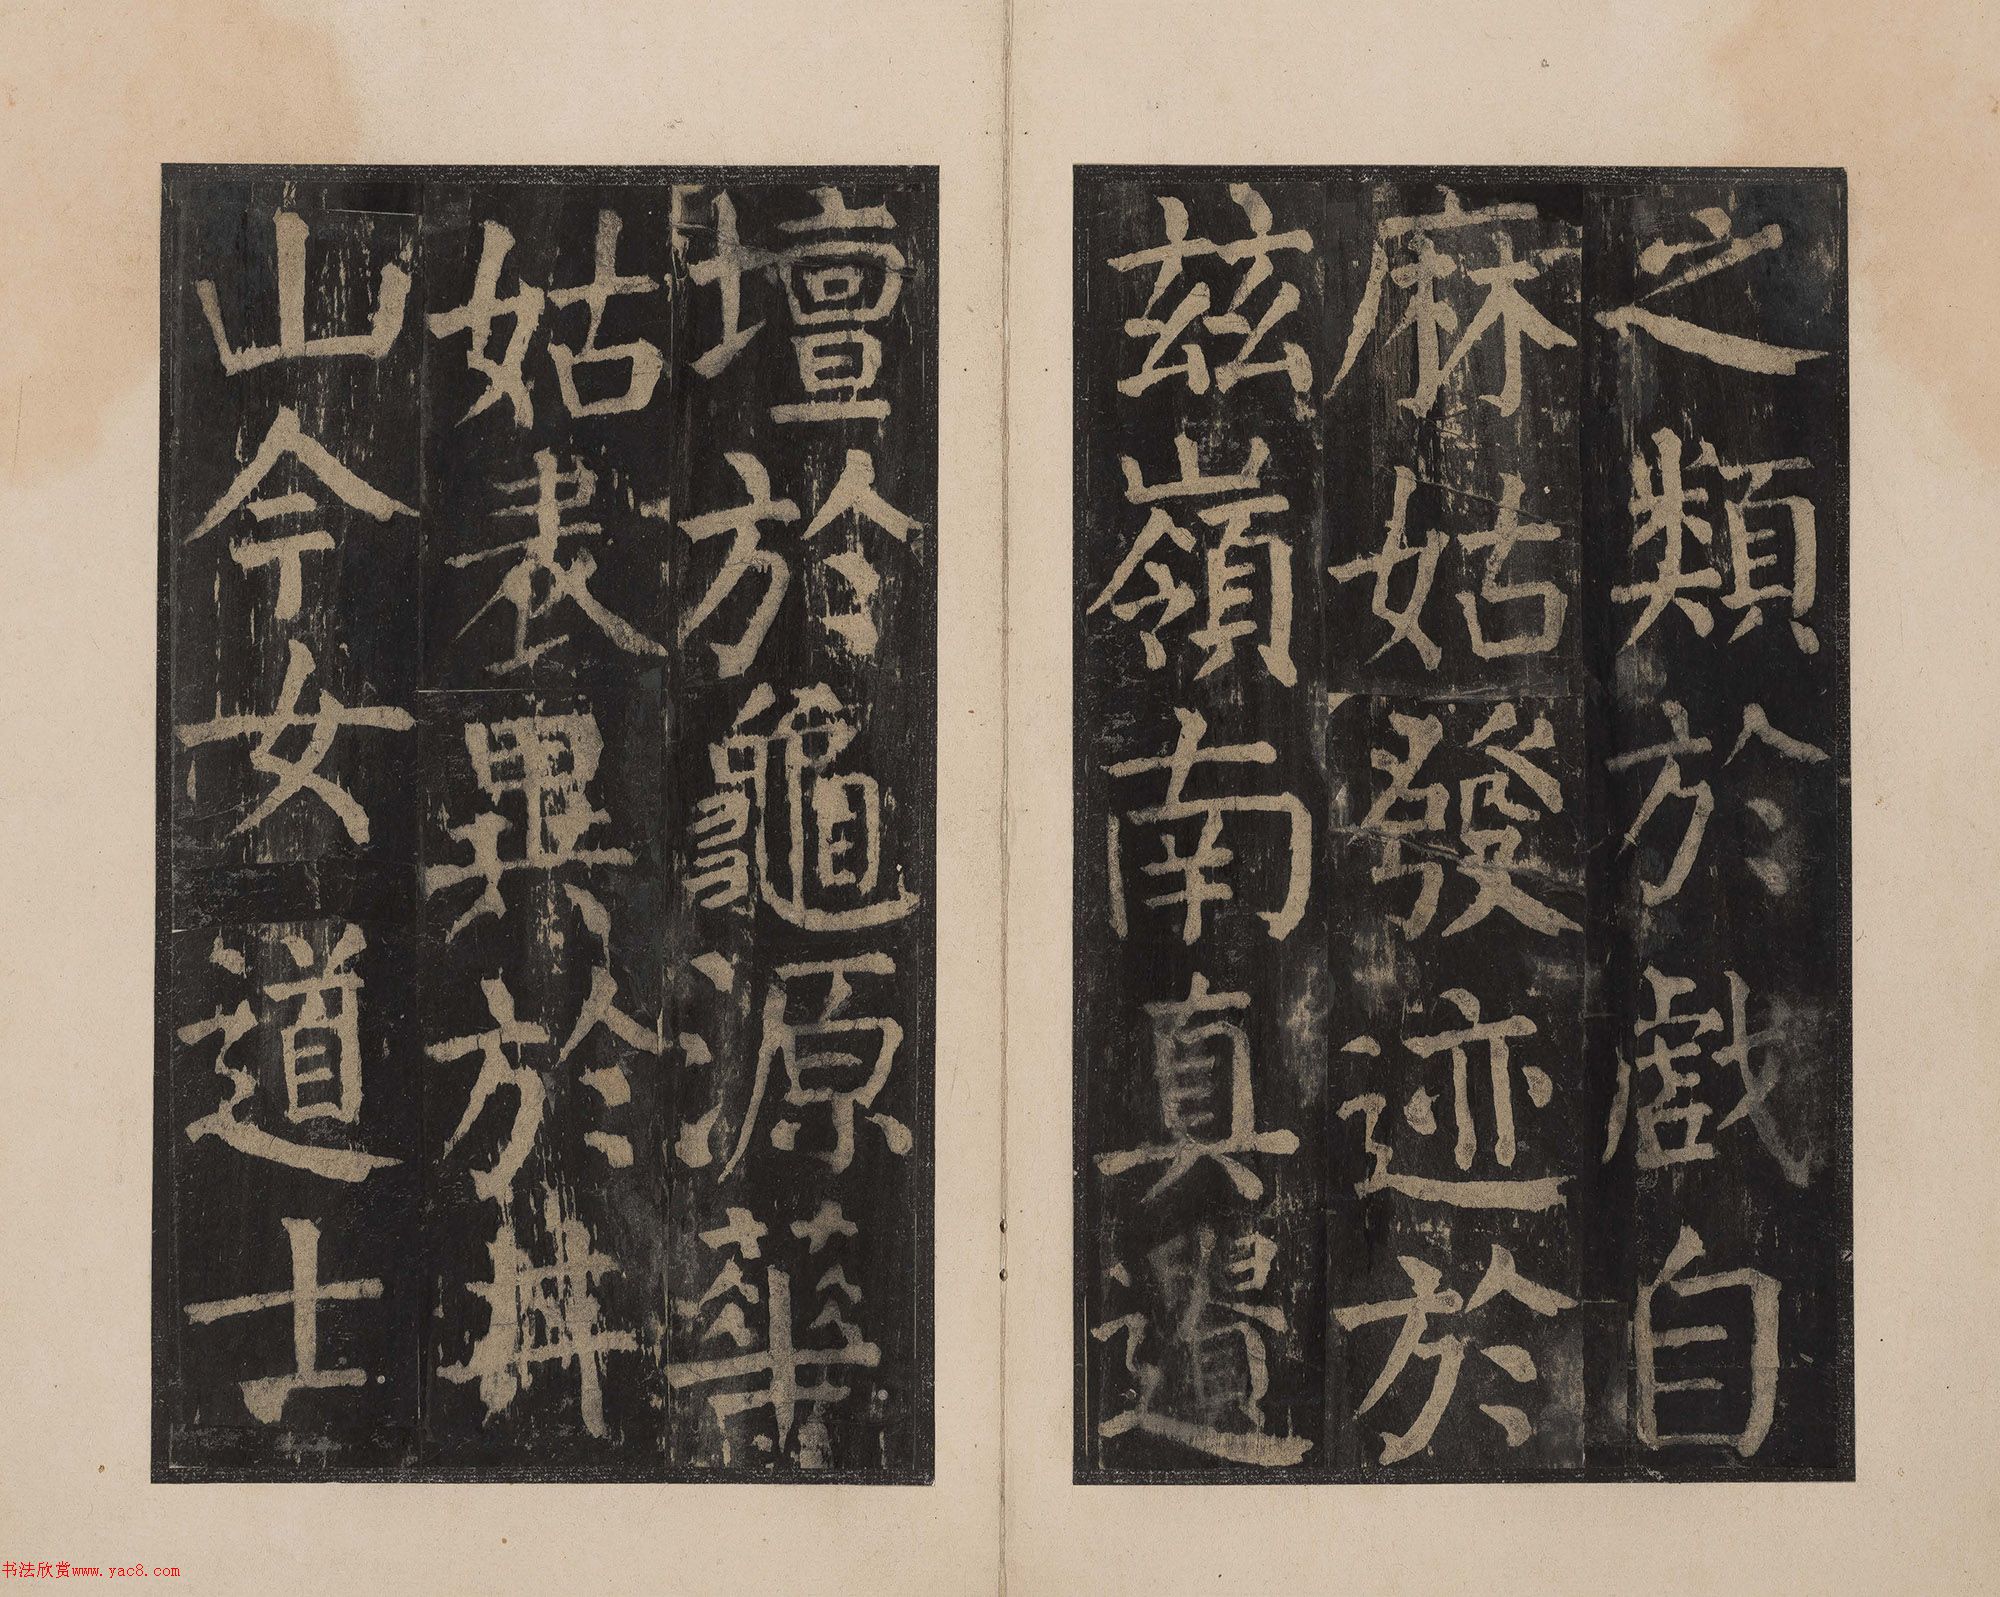 之類於戲自
麻姑發迹於
兹嶺南真遺
壇於龜源華
姑表異於井
山今女道士
书法欣赏www.yac8.com